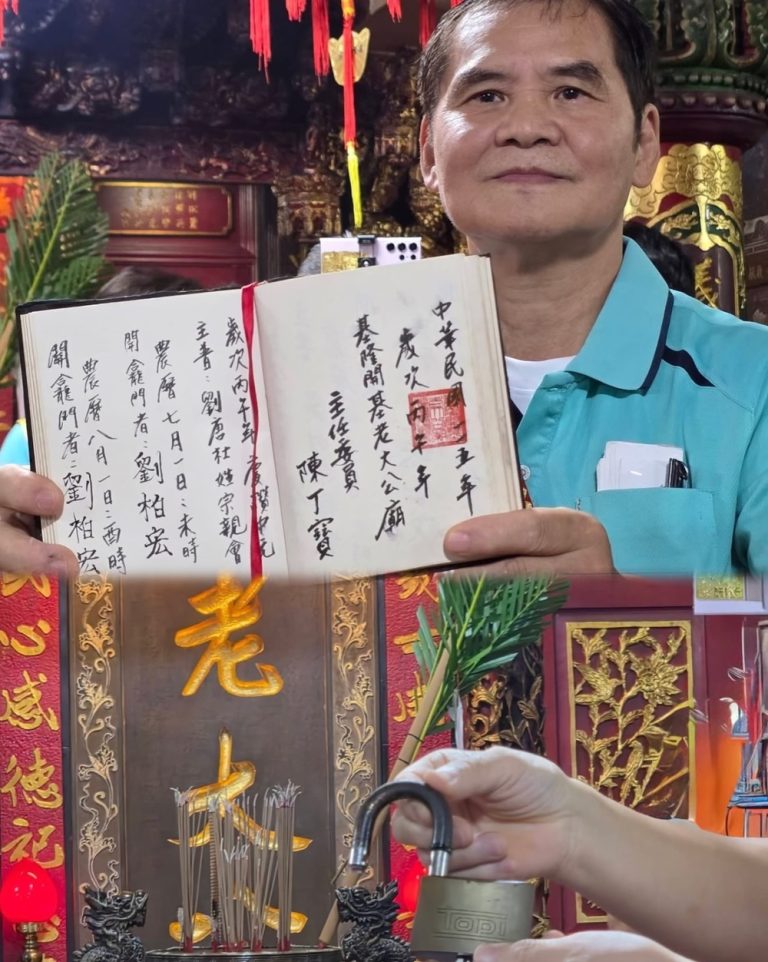 中華民國一一五年
歲次丙午年
基隆開基老大公廟
主任委員
陳丁寶
歲次丙午年慶讚中元
主普：劉唐杜姓宗親會
農曆七月一日：未時
開龕門者：劉柏宏
農曆八月一日：酉時
關龕門者：劉柏宏
老大
民心感德祀
TOPI